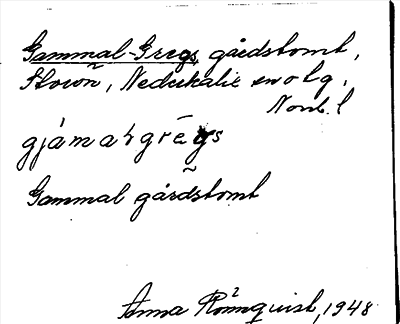 Gammal-Gregs gårdstomt,
Storön, Nederkalix sn o tg,
Norrb. l
gjámalgrēgs
Gammal gårdstomt
Anna Rönnquist, 1948